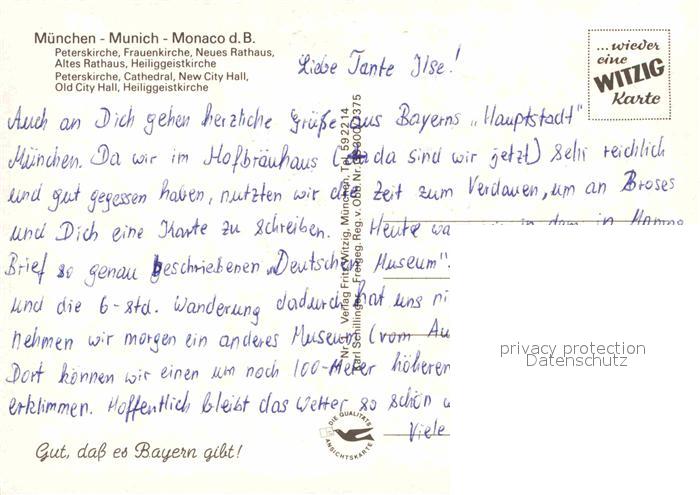 München - Munich - Monaco d. B.
Peterskirche, Frauenkirche, Neues Rathaus,
Altes Rathaus, Heiliggeistkirche
Peterskirche, Cathedral, New City Hall,
Old City Hall, Heiliggeistkirche
...wieder
eine
WITZIG
Karte
Liebe Tante Ilse!
Auch an Dich gehen herzliche Grüße aus Bayerns „Hauptstadt“
München. Da wir im Hofbräuhaus (da sind wir jetzt) sehr reichlich
und gut gegessen haben, nutzten wir die Zeit zum Verdauen, um an Broses
und Dich eine Karte zu schreiben. Heute wa in dem in Mamas
Brief so genau beschriebenen „Deutschen Museum“.
und die 6-std. Wanderung dadurch hat uns ni
nehmen wir morgen ein anderes Museum (vom Au
Dort können wir einen um noch 100-Meter höheren
erklimmen. Hoffentlich bleibt das Wetter so schön w
Viele
Verlag Fritz Witzig, München, Tel. 592214
Karl Schillinger Freigeg. Reg. v. Obb. Nr.
DIE QUALITÄTS
ANSICHTSKARTE
Gut, daß es Bayern gibt!
privacy protection
Datenschutz